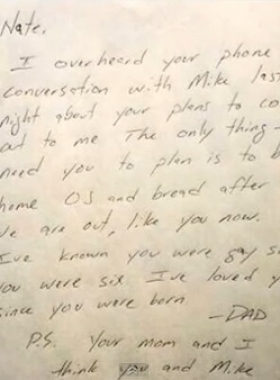 Nate,
I overheard your phone
conversation with Mike last
night about your plans to co
out to me The only thing
need you to plan is to b
home OJ and bread after
ve are out, like you now.
I've known you were gay s
you were six I've loved y
since you were born
-DAD
P.S. Your mom and I
think you and Mike